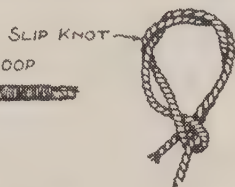 SLIP KNOT
OOP